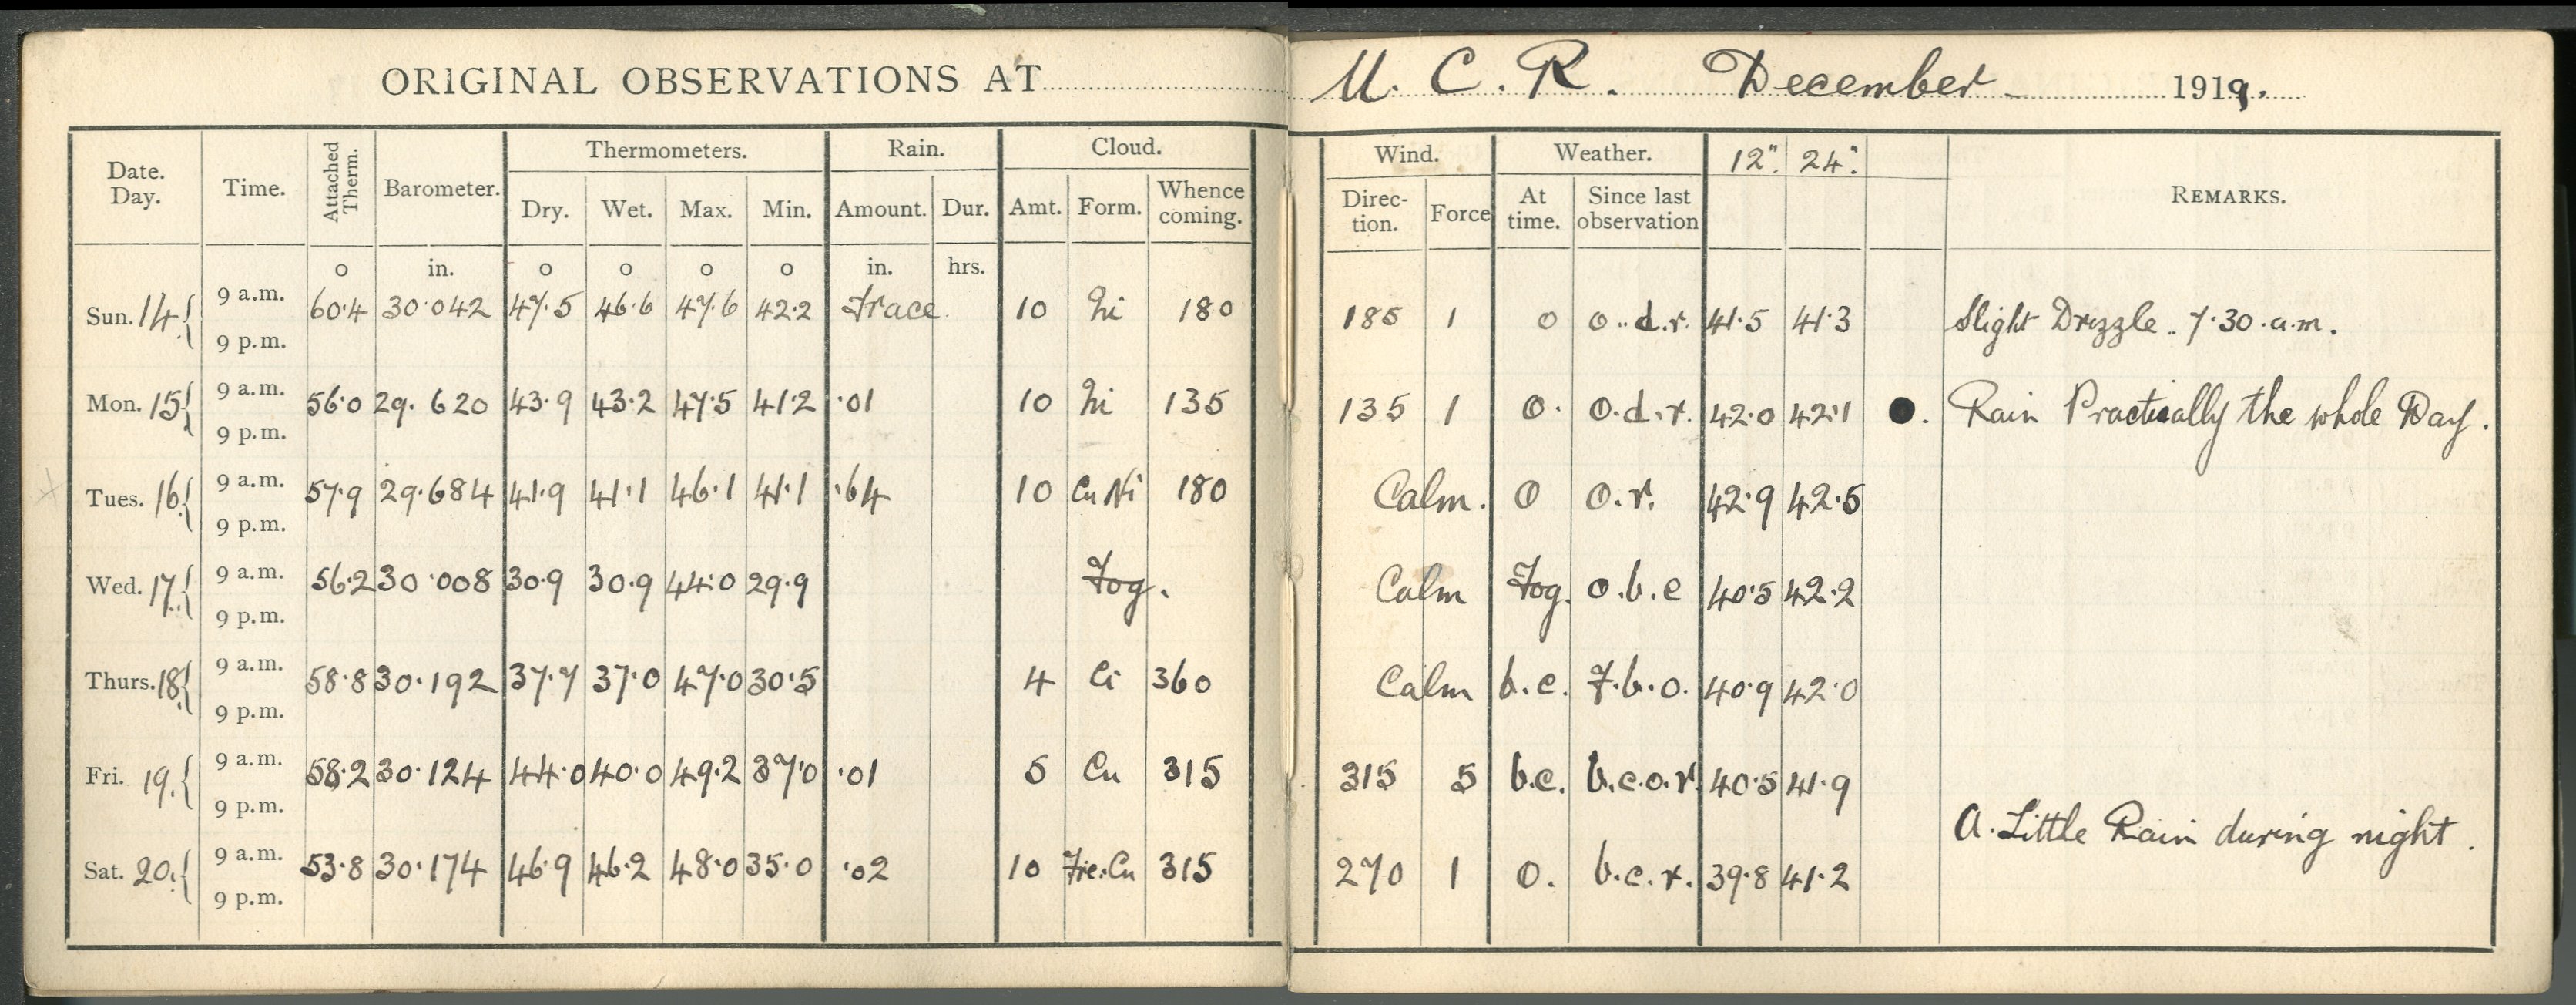 ORIGINAL OBSERVATIONS AT U. C. R. December 1919.
Date. Day. Time. Attached Therm. Barometer. Thermometers. Rain. Cloud. Wind. Weather. 12". 24". REMARKS.
Dry. Wet. Max. Min. Amount. Dur. Amt. Form. Whence coming. Direc-tion. Force At time. Since last observation
o in. o o o o in. hrs.
Sun. 14 9 a.m. 60.4 30.042 47.5 46.6 47.6 42.2 Trace. 10 Ni 180 185 1 o o..d.r. 41.5 41.3 Slight Drizzle.. 7.30.a.m.
9 p.m.
Mon. 15 9 a.m. 56.0 29.620 43.9 43.2 47.5 41.2 .01 10 Ni 135 135 1 o. o.d.r. 42.0 42.1 ●. Rain Practically the whole Day.
9 p.m.
Tues. 16 9 a.m. 57.9 29.684 41.9 41.1 46.1 41.1 .64 10 Cu Ni 180 Calm. o o.r. 42.9 42.5
9 p.m.
Wed. 17 9 a.m. 56.2 30.008 30.9 30.9 44.0 29.9 Fog. Calm Fog. o.b.c 40.5 42.2
9 p.m.
Thurs. 18 9 a.m. 58.8 30.192 37.7 37.0 47.0 30.5 4 Ci 360 Calm b.c. F.b.o. 40.9 42.0
9 p.m.
Fri. 19. 9 a.m. 58.2 30.124 44.0 40.0 49.2 37.0 .01 5 Cu 315 315 5 b.c. b.c.o.r 40.5 41.9
9 p.m.
A. Little Rain during night.
Sat. 20. 9 a.m. 53.8 30.174 46.9 46.2 48.0 35.0 .02 10 Fre.Cu 315 270 1 o. b.c.r. 39.8 41.2
9 p.m.